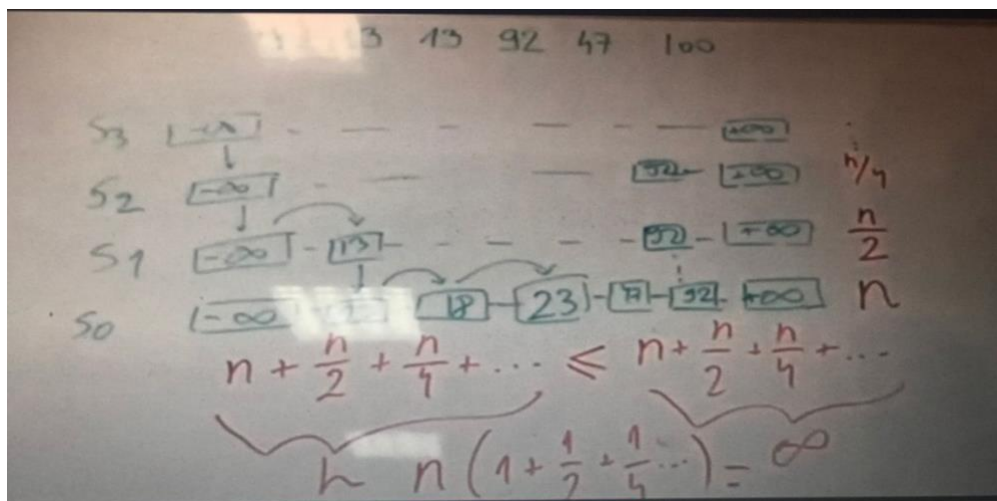 3 13 92 47 100
S3 -∞ +∞
S2 -∞ 92 +∞ n/4
S1 -∞ 13 92 +∞ n/2
S0 -∞ 18 23 92 +∞ n
n + n/2 + n/4 + ... ≤ n + n/2 + n/4 + ...
h n(1 + 1/2 + 1/4 ...) = ∞